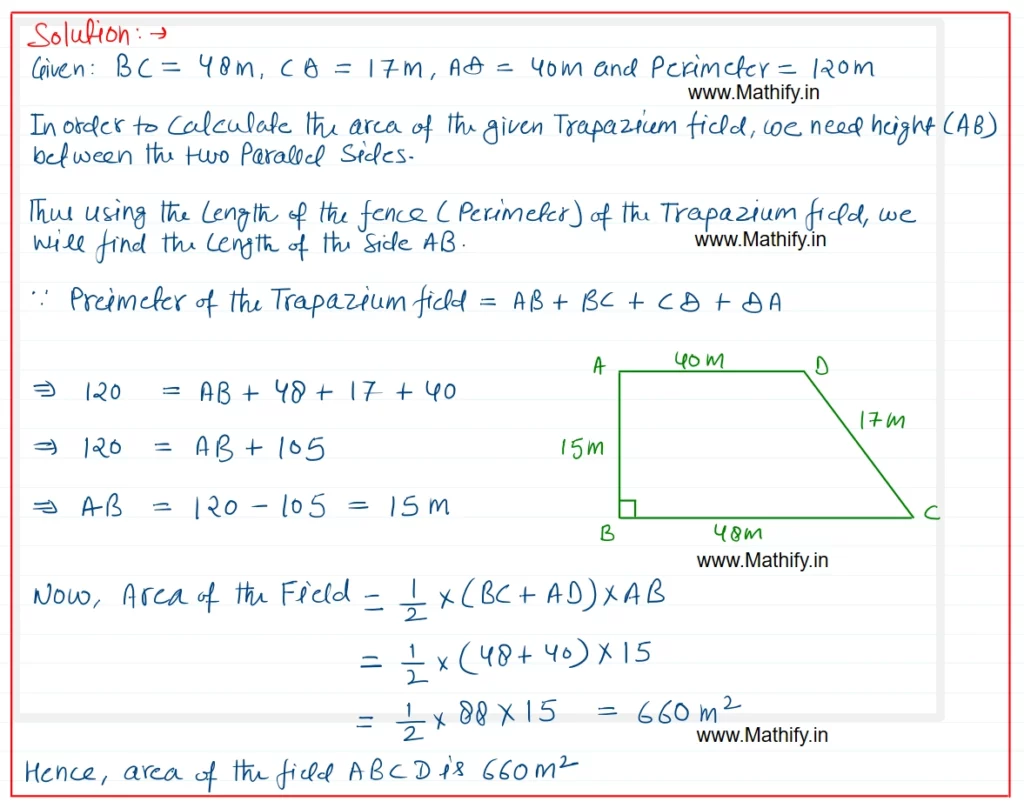 Solution: →
Given: BC = 48m, CD = 17m, AD = 40m and Perimeter = 120m
www.Mathify.in
In order to Calculate the area of the given Trapazium field, we need height (AB)
between the two Parallel Sides.
Thus using the Length of the fence (Perimeter) of the Trapazium field, we
will find the Length of the Side AB.
www.Mathify.in
∵ Preimeter of the Trapazium field = AB + BC + CD + DA
⇒ 120 = AB + 48 + 17 + 40
⇒ 120 = AB + 105
⇒ AB = 120 - 105 = 15 m
A 40m D
17m
15m
B 48m C
www.Mathify.in
Now, Area of the Field = 1/2 × (BC + AD) × AB
= 1/2 × (48 + 40) × 15
= 1/2 × 88 × 15 = 660 m²
www.Mathify.in
Hence, area of the field ABCD is 660m²